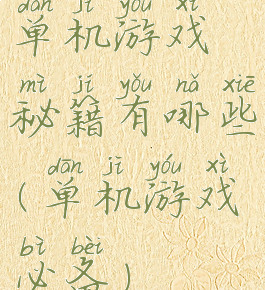 dān jī yóu xì
单机游戏
mì jí yǒu nǎ xiē
秘籍有哪些
dān jī yóu xì
(单机游戏
bì bèi
必备)